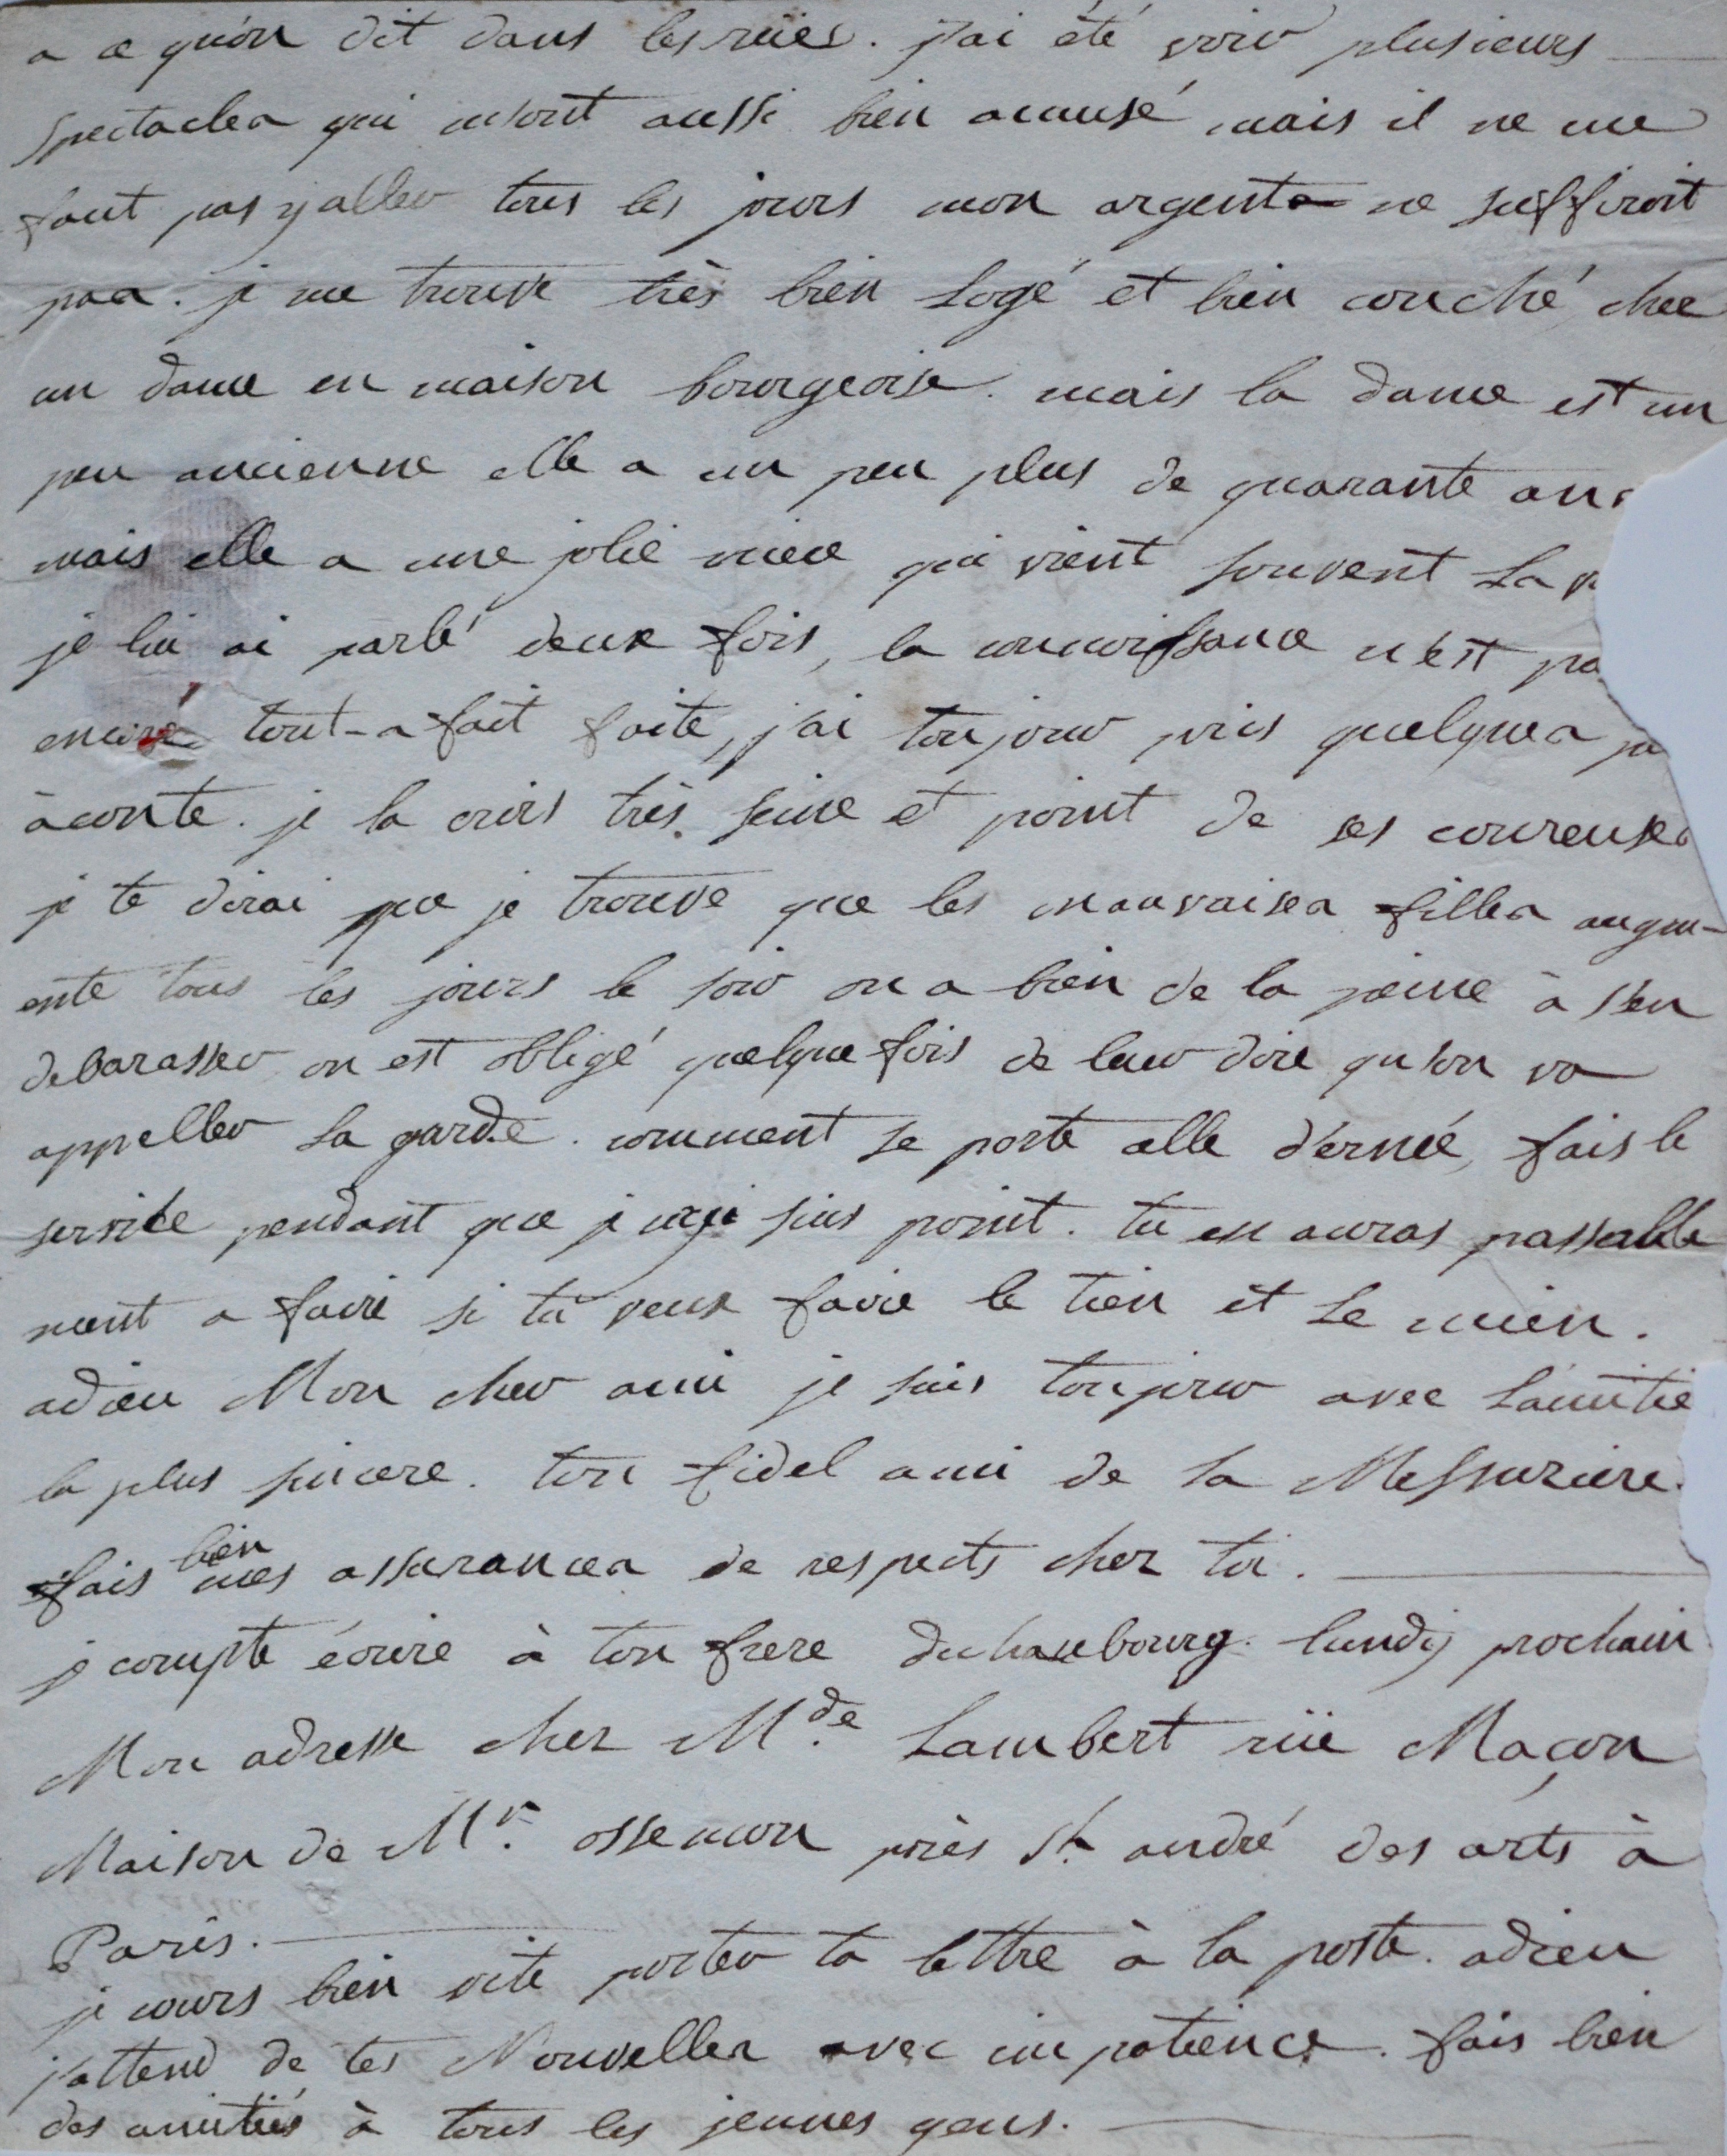 a ce qu'on dit dans les rües. j'ai été voir plusieurs
spectacles qui m'ont aussi bien amusé mais il ne me
faut pas y aller tous les jours mon argent ne suffiroit
pas. je me trouve très bien logé et bien couché chez
un dame en maison bourgeoise. mais la dame est un
peu ancienne elle a un peu plus de quarante ans
mais elle a une jolie niece qui vient souvent la v
je lui ai parlé deux fois, la connoissance n'est pa
encore tout-a fait faite, j'ai toujour pris quelques
àconte. je la crois très seine et point de ses coureuses
je te dirai que je trouve que les mauvaises filles augm-
ente tous les jours le soir on a bien de la peine à s'en
debarasser on est obligé quelque fois de leur dire qu'on va
appeller la garde. comment se porte elle d'ernée, fais le
service pendant que j'y suis point. tu en auras passable
ment a faire si tu veux faire le tien et le mien.
adieu Mon cher ami je suis toujour avec l'amitié
la plus sincere. ton fidel ami de la Messuziere.
fais bien mes assurances de respects chez toi.
j compte écrire à ton frere duhaubourg. lundy prochain
Mon adresse chez Mde. Lambert rüe Maçon
Maison de Mr. ossemon près St. andré des arts à
Paris.
je cours bien vite porter ta lettre à la poste. adieu
j'attend de tes Nouvelles avec impatience. fais bien
des amitiés à tous les jeunes gens.